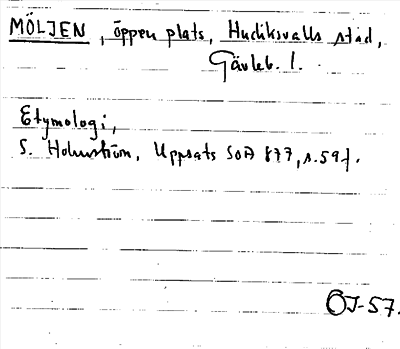 MÖLJEN, öppen plats, Hudiksvalls stad,
Gävleb. l.
Etymologi,
S. Holmström, Uppsats SOÄ 877, s. 59 f.
ÖJ-57.